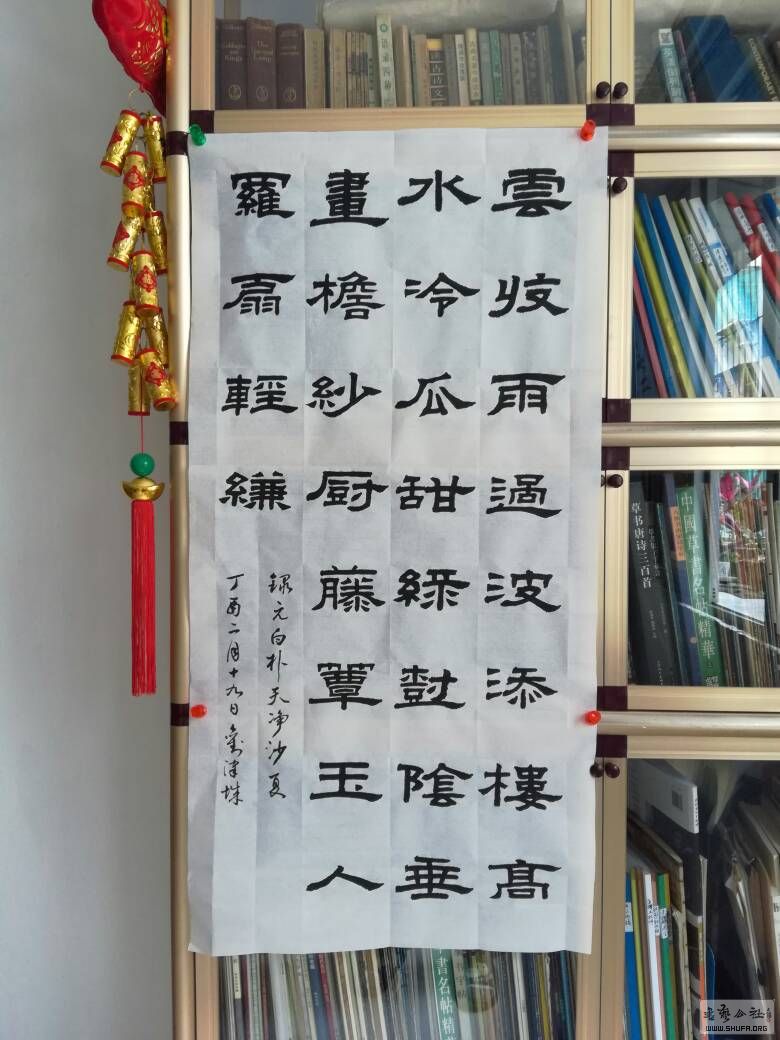 雲收雨過波添樓高
水冷瓜甜綠樹陰垂
畫檐紗厨藤簟玉人
羅扇輕縑
録元白朴天净沙夏
丁酉二月十九日劉津
Cabbages and Kings
草书唐诗三百首
中國草書名帖精華
書名帖精華
书艺公社
WWW.SHUFA.ORG